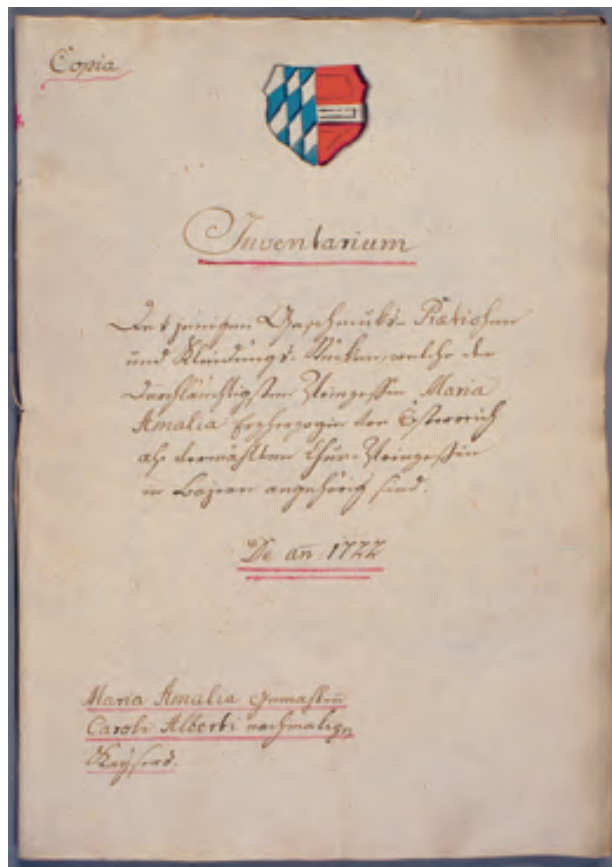 Copia
Inventarium
Derjenigen Geschmuks- Pretiosen
und Kleidungs- Stüken, welche der
Durchläuchtigsten Prinzessin Maria
Amalia Erzherzogin von Österreich
als vermählten Chur-Prinzessin
in Bajern angehörig sind.
De añ: 1722
Maria Amalia Gemahlin
Caroli Alberti nachmalign
Kaysers.